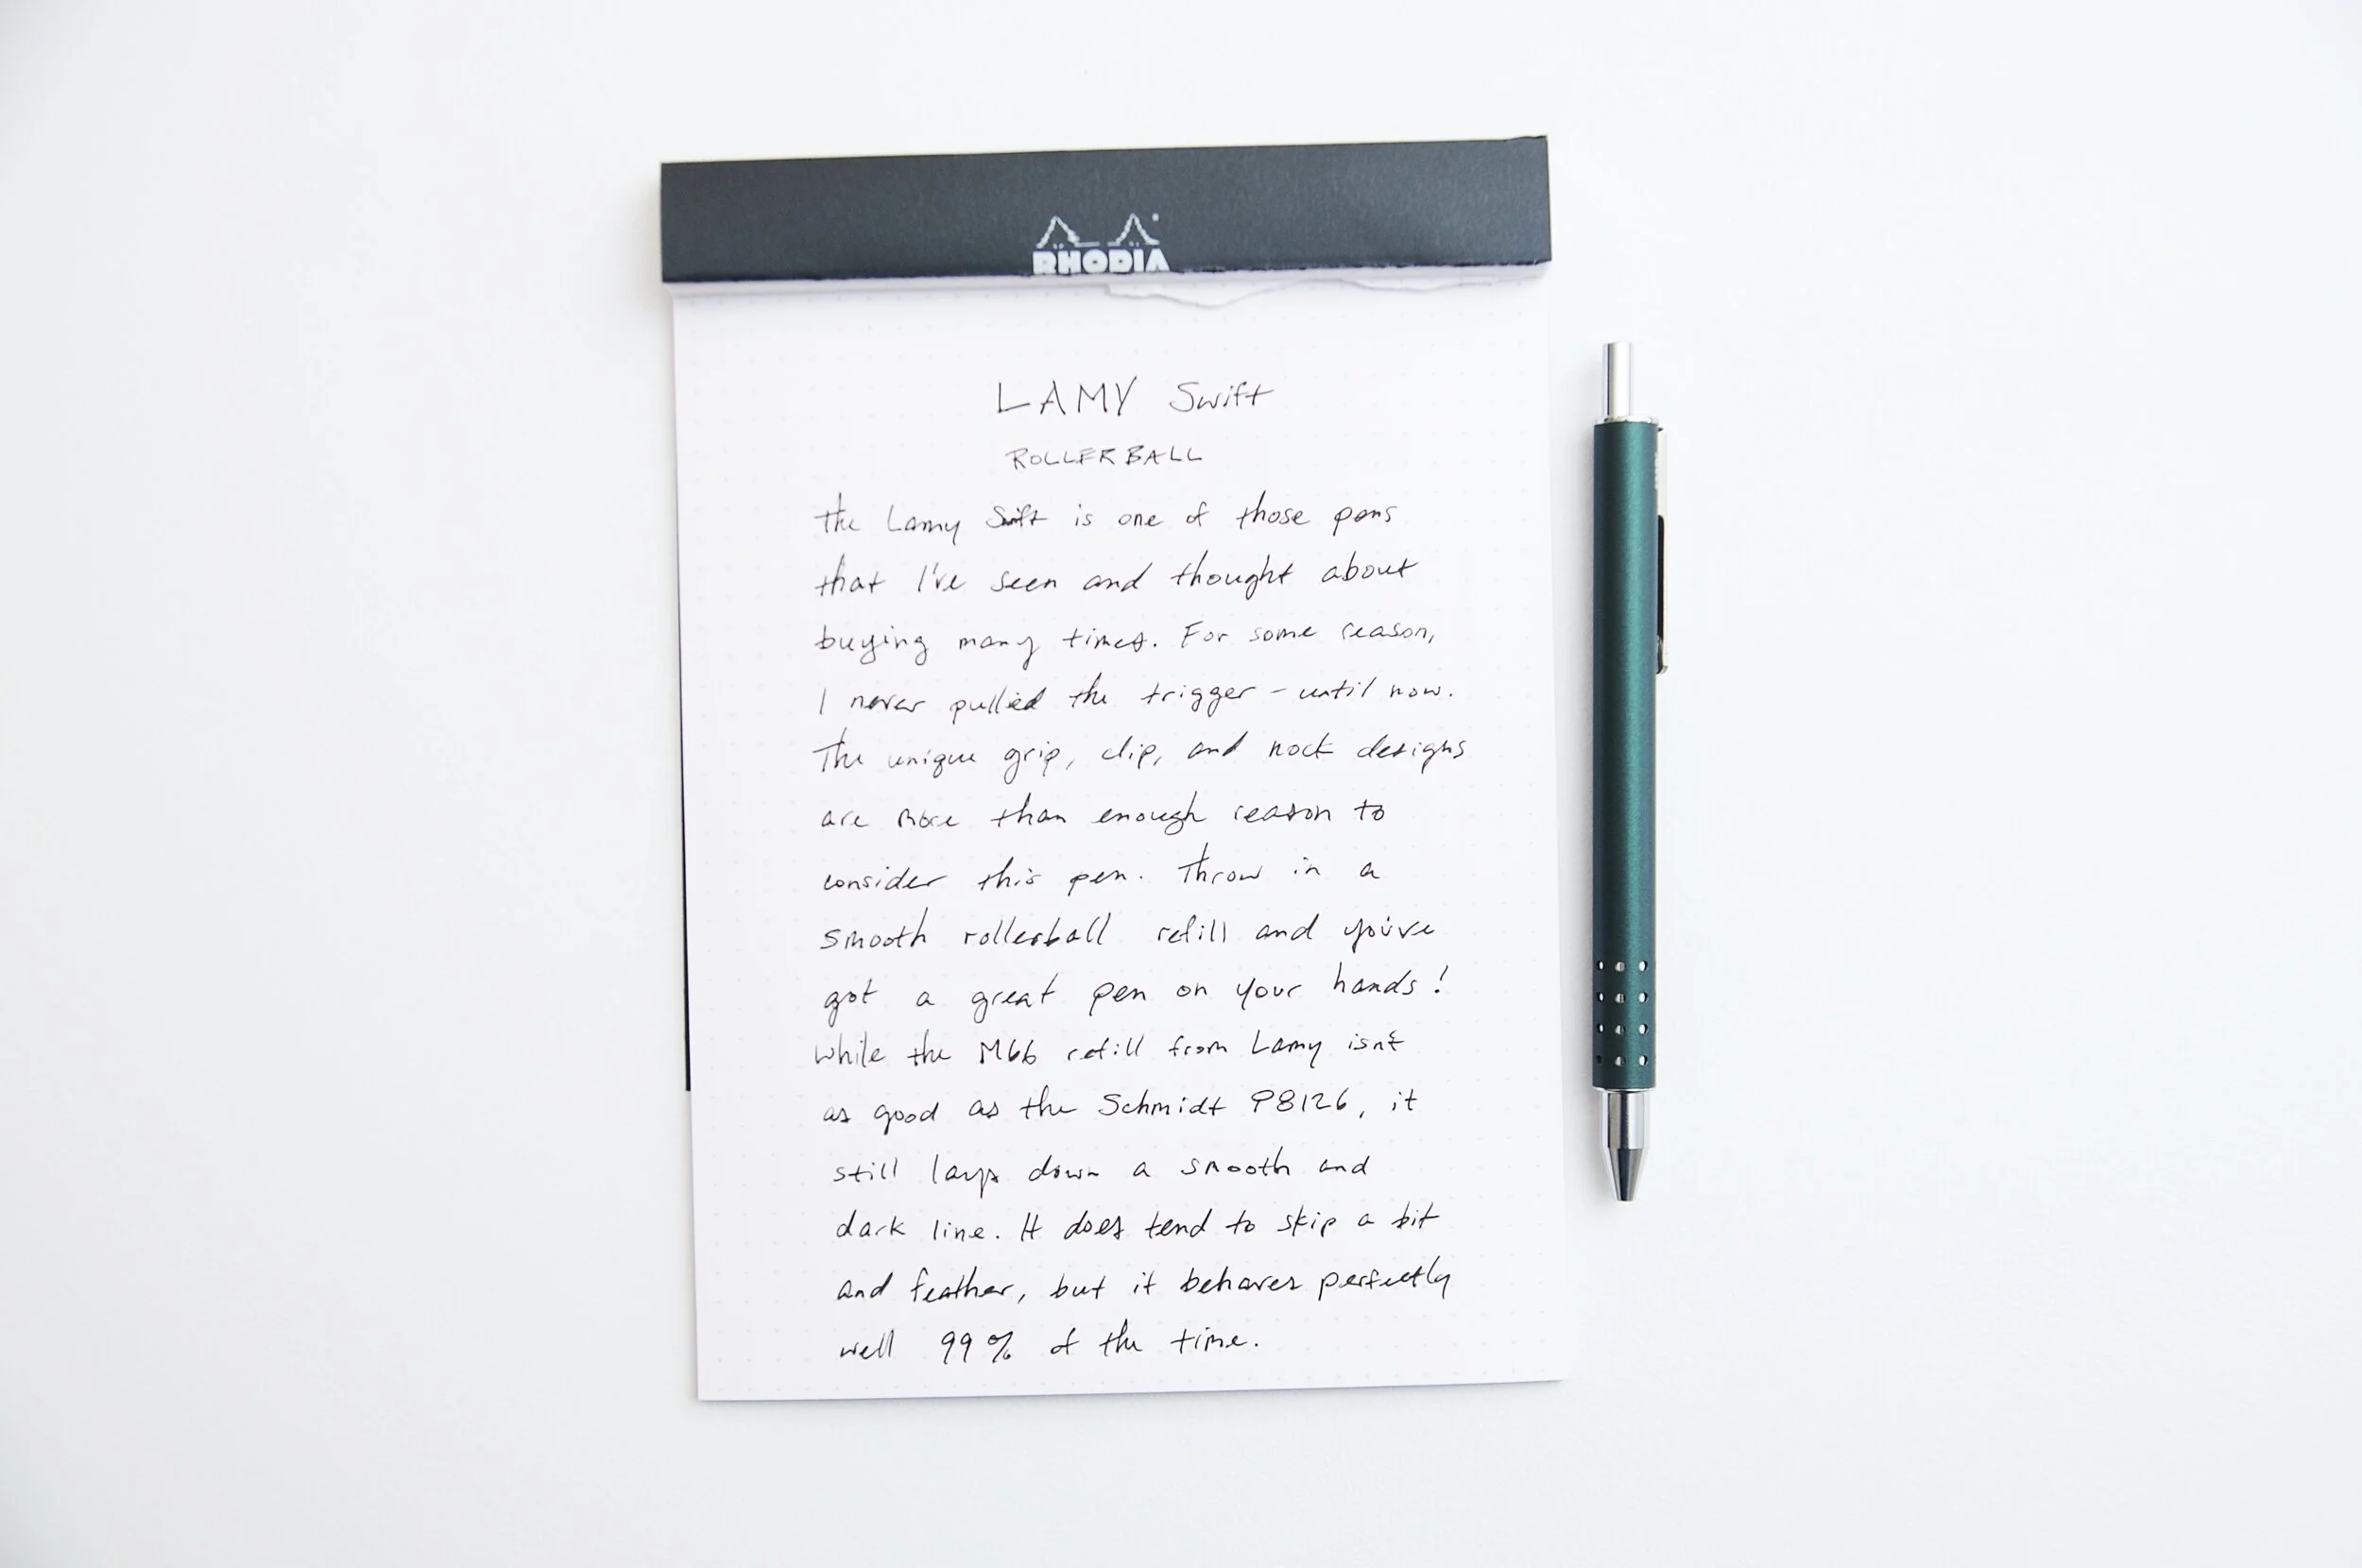 RHODIA
LAMY Swift
ROLLERBALL
The Lamy Swift is one of those pens
that I've seen and thought about
buying many times. For some reason,
I never pulled the trigger – until now.
The unique grip, clip, and nock designs
are more than enough reason to
consider this pen. Throw in a
smooth rollerball refill and you've
got a great pen on your hands!
While the M66 refill from Lamy isn't
as good as the Schmidt P8126, it
still lays down a smooth and
dark line. It does tend to skip a bit
and feather, but it behaves perfectly
well 99% of the time.